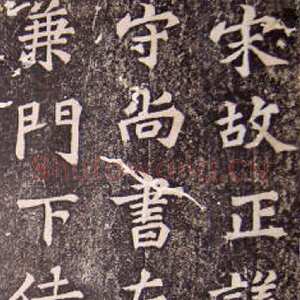 宋故正議
守尚書左
兼門下侍